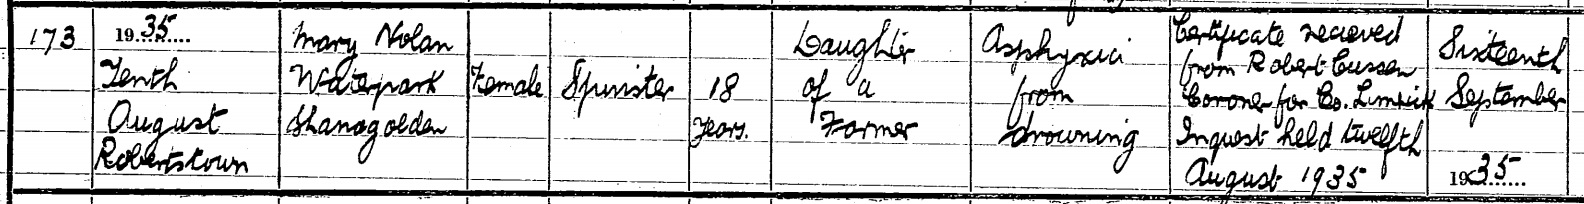 173
1935
Tenth
August
Robertstown
Mary Nolan
Waterpark
Shanagolden
Female
Spinster
18
years.
Daughter
of a
Farmer
Asphyxia
from
drowning
Certificate recieved
from Robert Cussen
Coroner for Co. Limrick
Inquest held twelfth
August 1935
Sixteenth
September
1935